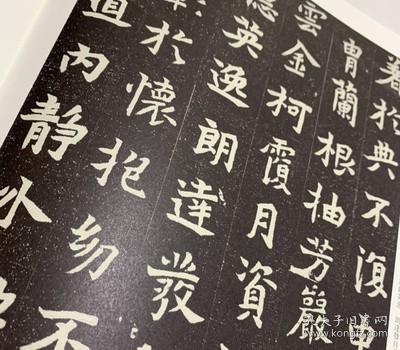 著於典不復申
胄蘭根抽芳巖
雲金柯霞月資
英逸朗達發
於懷抱幼不
道內靜水
孔夫子旧书网